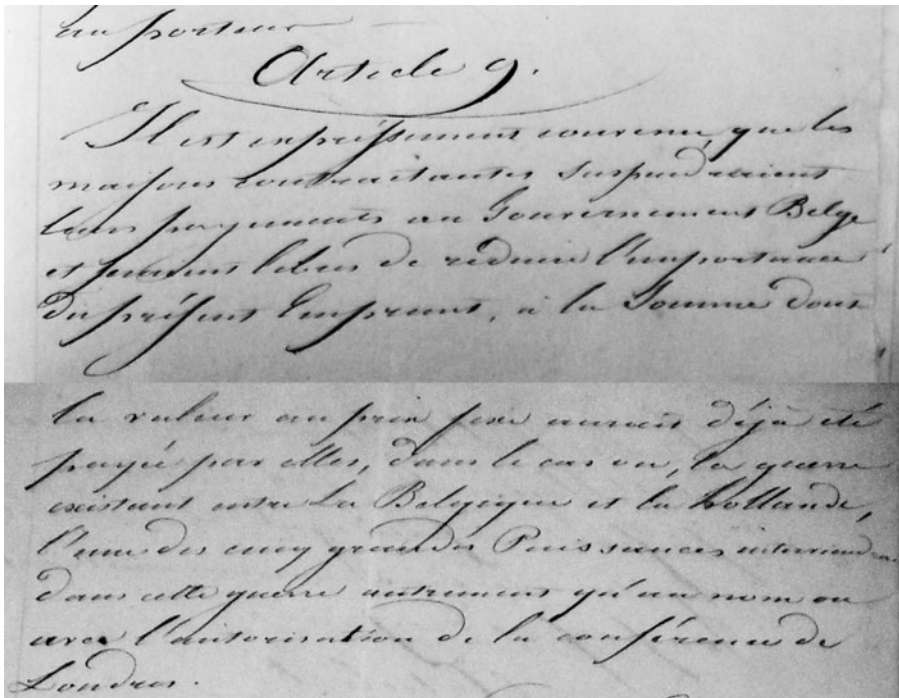 au porteur
Article 9.
Il est expressément convenu, que les
maisons contractantes suspendraient
leurs payements au Gouvernement Belge
et seraient libres de réduire l'importance
du présent Emprunt, à la Somme dont
la valeur au prix fixe aurait déjà été
payée par elles, dans le cas ou, la guerre
existant entre La Belgique et la Hollande,
l'une des cinq grandes Puissances interviendrait
dans cette guerre autrement qu'au nom ou
avec l'autorisation de la conférence de
Londres.